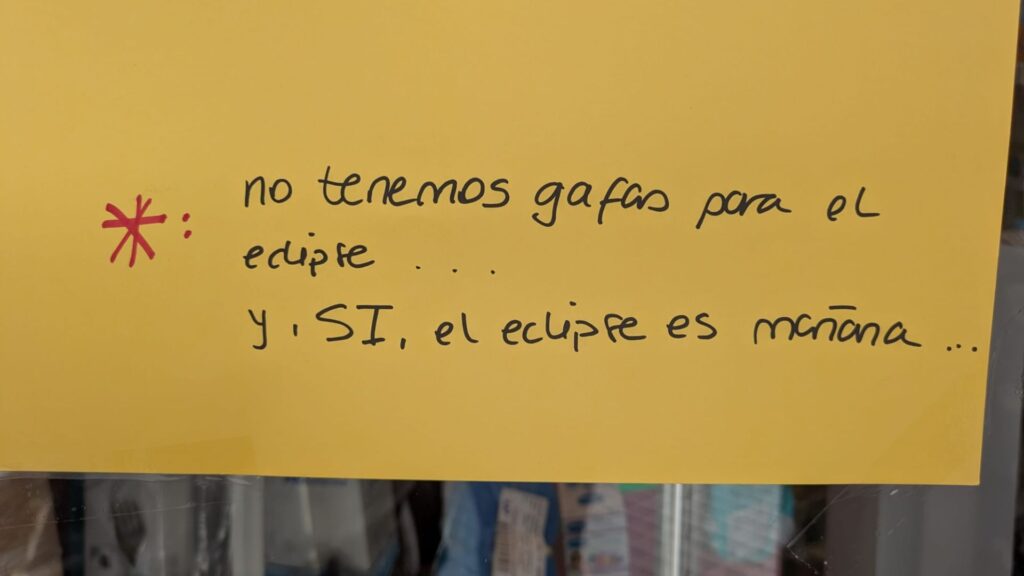 *: no tenemos gafas para el
eclipse ...
y, SI, el eclipse es mañana ...